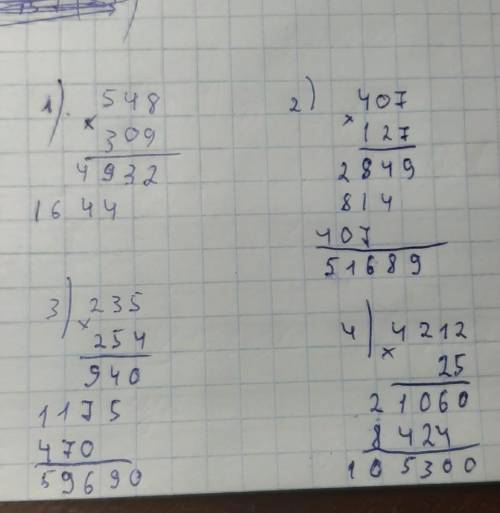 1). 548
× 309
4932
1644
2) 407
× 127
2849
814
407
51689
3) 235
× 254
940
1175
470
59690
4) 4212
× 25
21060
8424
105300